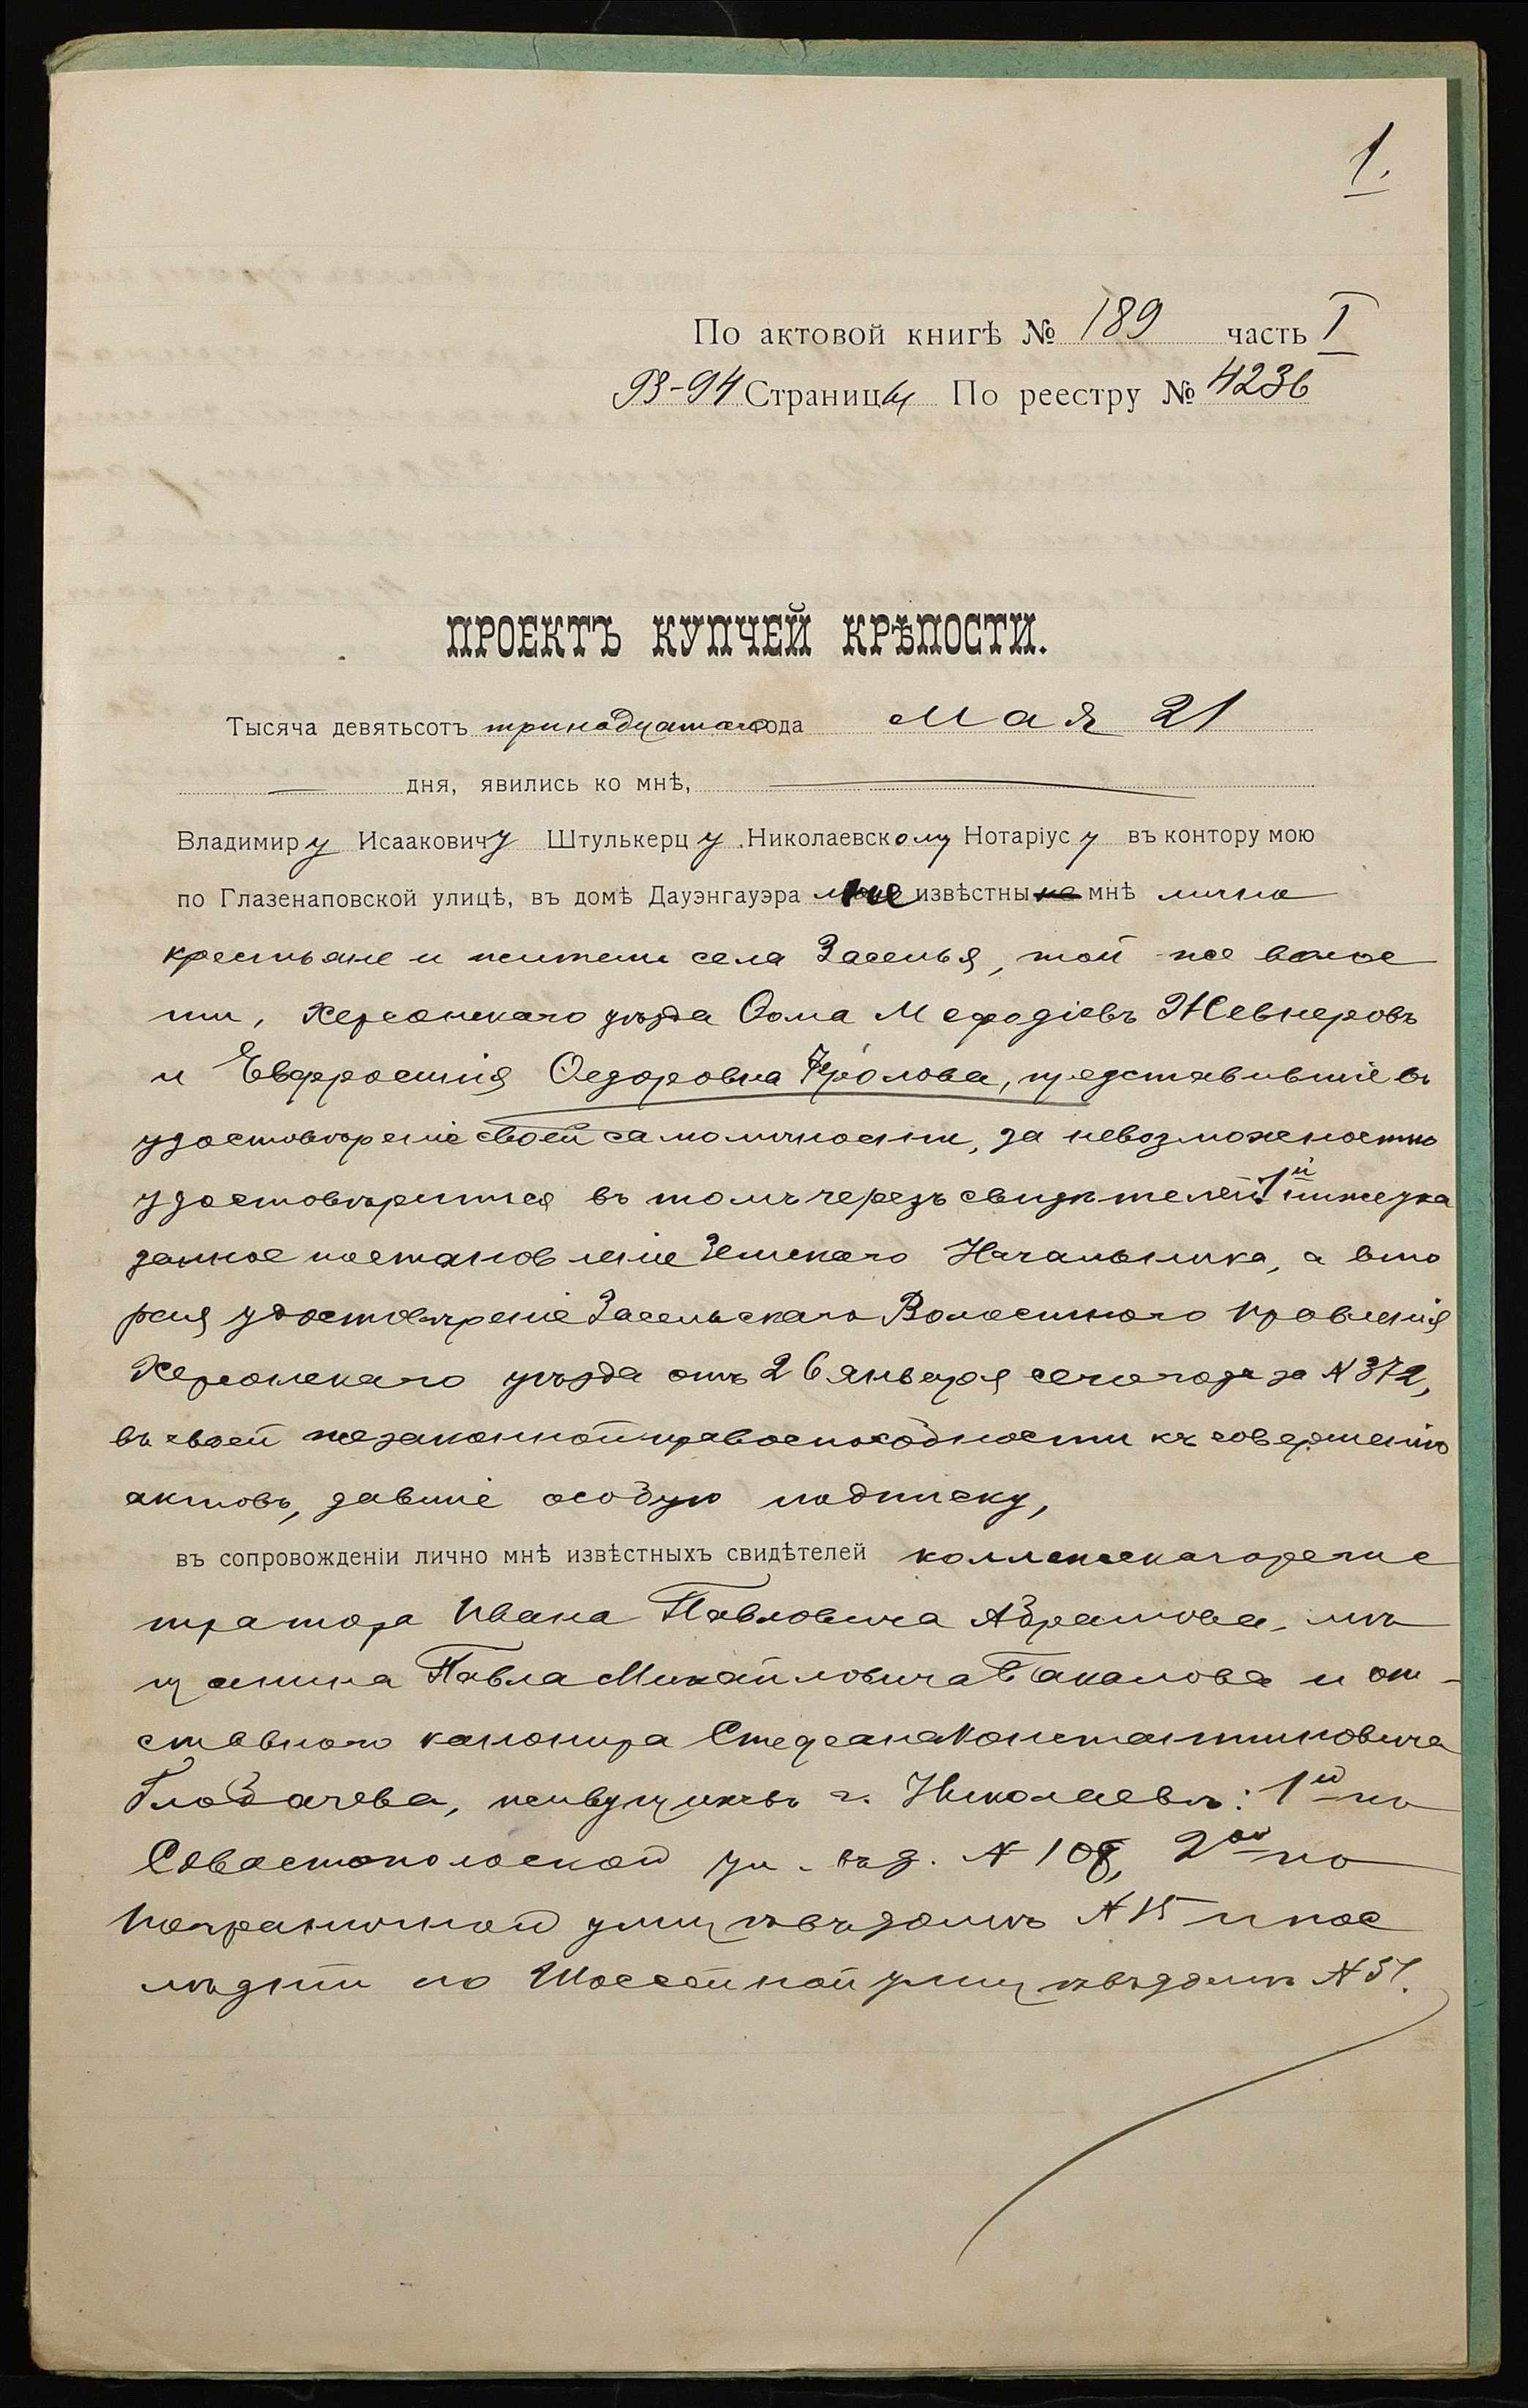 1.
По актовой книгѣ № 189 часть I
93-94 Страницы По реестру № 4236
ПРОЕКТЪ КУПЧЕЙ КРѢПОСТИ.
Тысяча девятьсотъ тринадцатаго года мая 21
дня, явились ко мнѣ,
Владимиру Исааковичу Штулькерцу Николаевскому Нотаріусу въ контору мою
по Глазенаповской улицѣ, въ домѣ Дауэнгауэра не извѣстные мнѣ лично
крестьяне и жители села Заселья, той же волос
ти, Херсонскаго уѣзда Ѳома Мефодіевъ Жевнеровъ
и Евфросинія Ѳедоровна Фролова, представившіе въ
удостовѣреніе своей самоличности, за невозможностью
удостовѣриться въ томъ черезъ свидѣтелей 1й нижеука
занное постановленіе Земскаго Начальника, а вто
рая удостовѣреніе Засельскаго Волостного Правленія
Херсонскаго уѣзда отъ 26 января сего года за № 372,
въ своей же законной правоспособности къ совершенію
актовъ, давшіе особую подписку,
въ сопровожденіи лично мнѣ извѣстныхъ свидѣтелей коллежскаго регис
тратора Ивана Павловича Абрамова, мѣ
щанина Павла Михайловича Бакалова и от-
ставного канонира Стефана Константиновича
Глобачева, живущихъ въ г. Николаевѣ: 1й по
Севастопольской ул. въ д. № 108, 2ой по
Пограничной улицѣ въ домѣ № 15 и пос
лѣдній по Шоссейной улицѣ въ домѣ № 51.